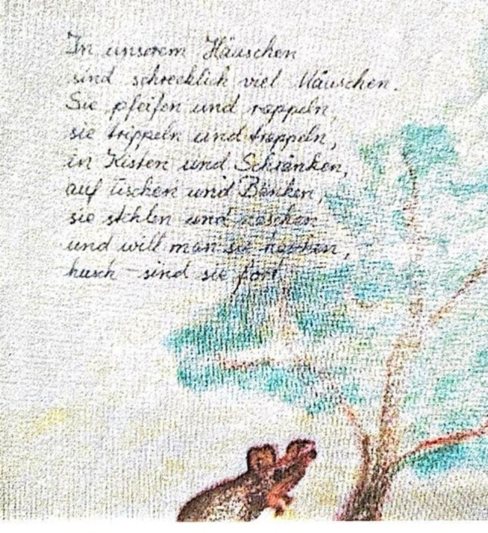 In unserem Häuschen
sind schrecklich viel Mäuschen.
Sie pfeifen und rappeln,
sie trippeln und trappeln,
in Kisten und Schränken,
auf Tischen und Bänken,
sie stehlen und naschen
und will man sie haschen,
husch - sind sie fort